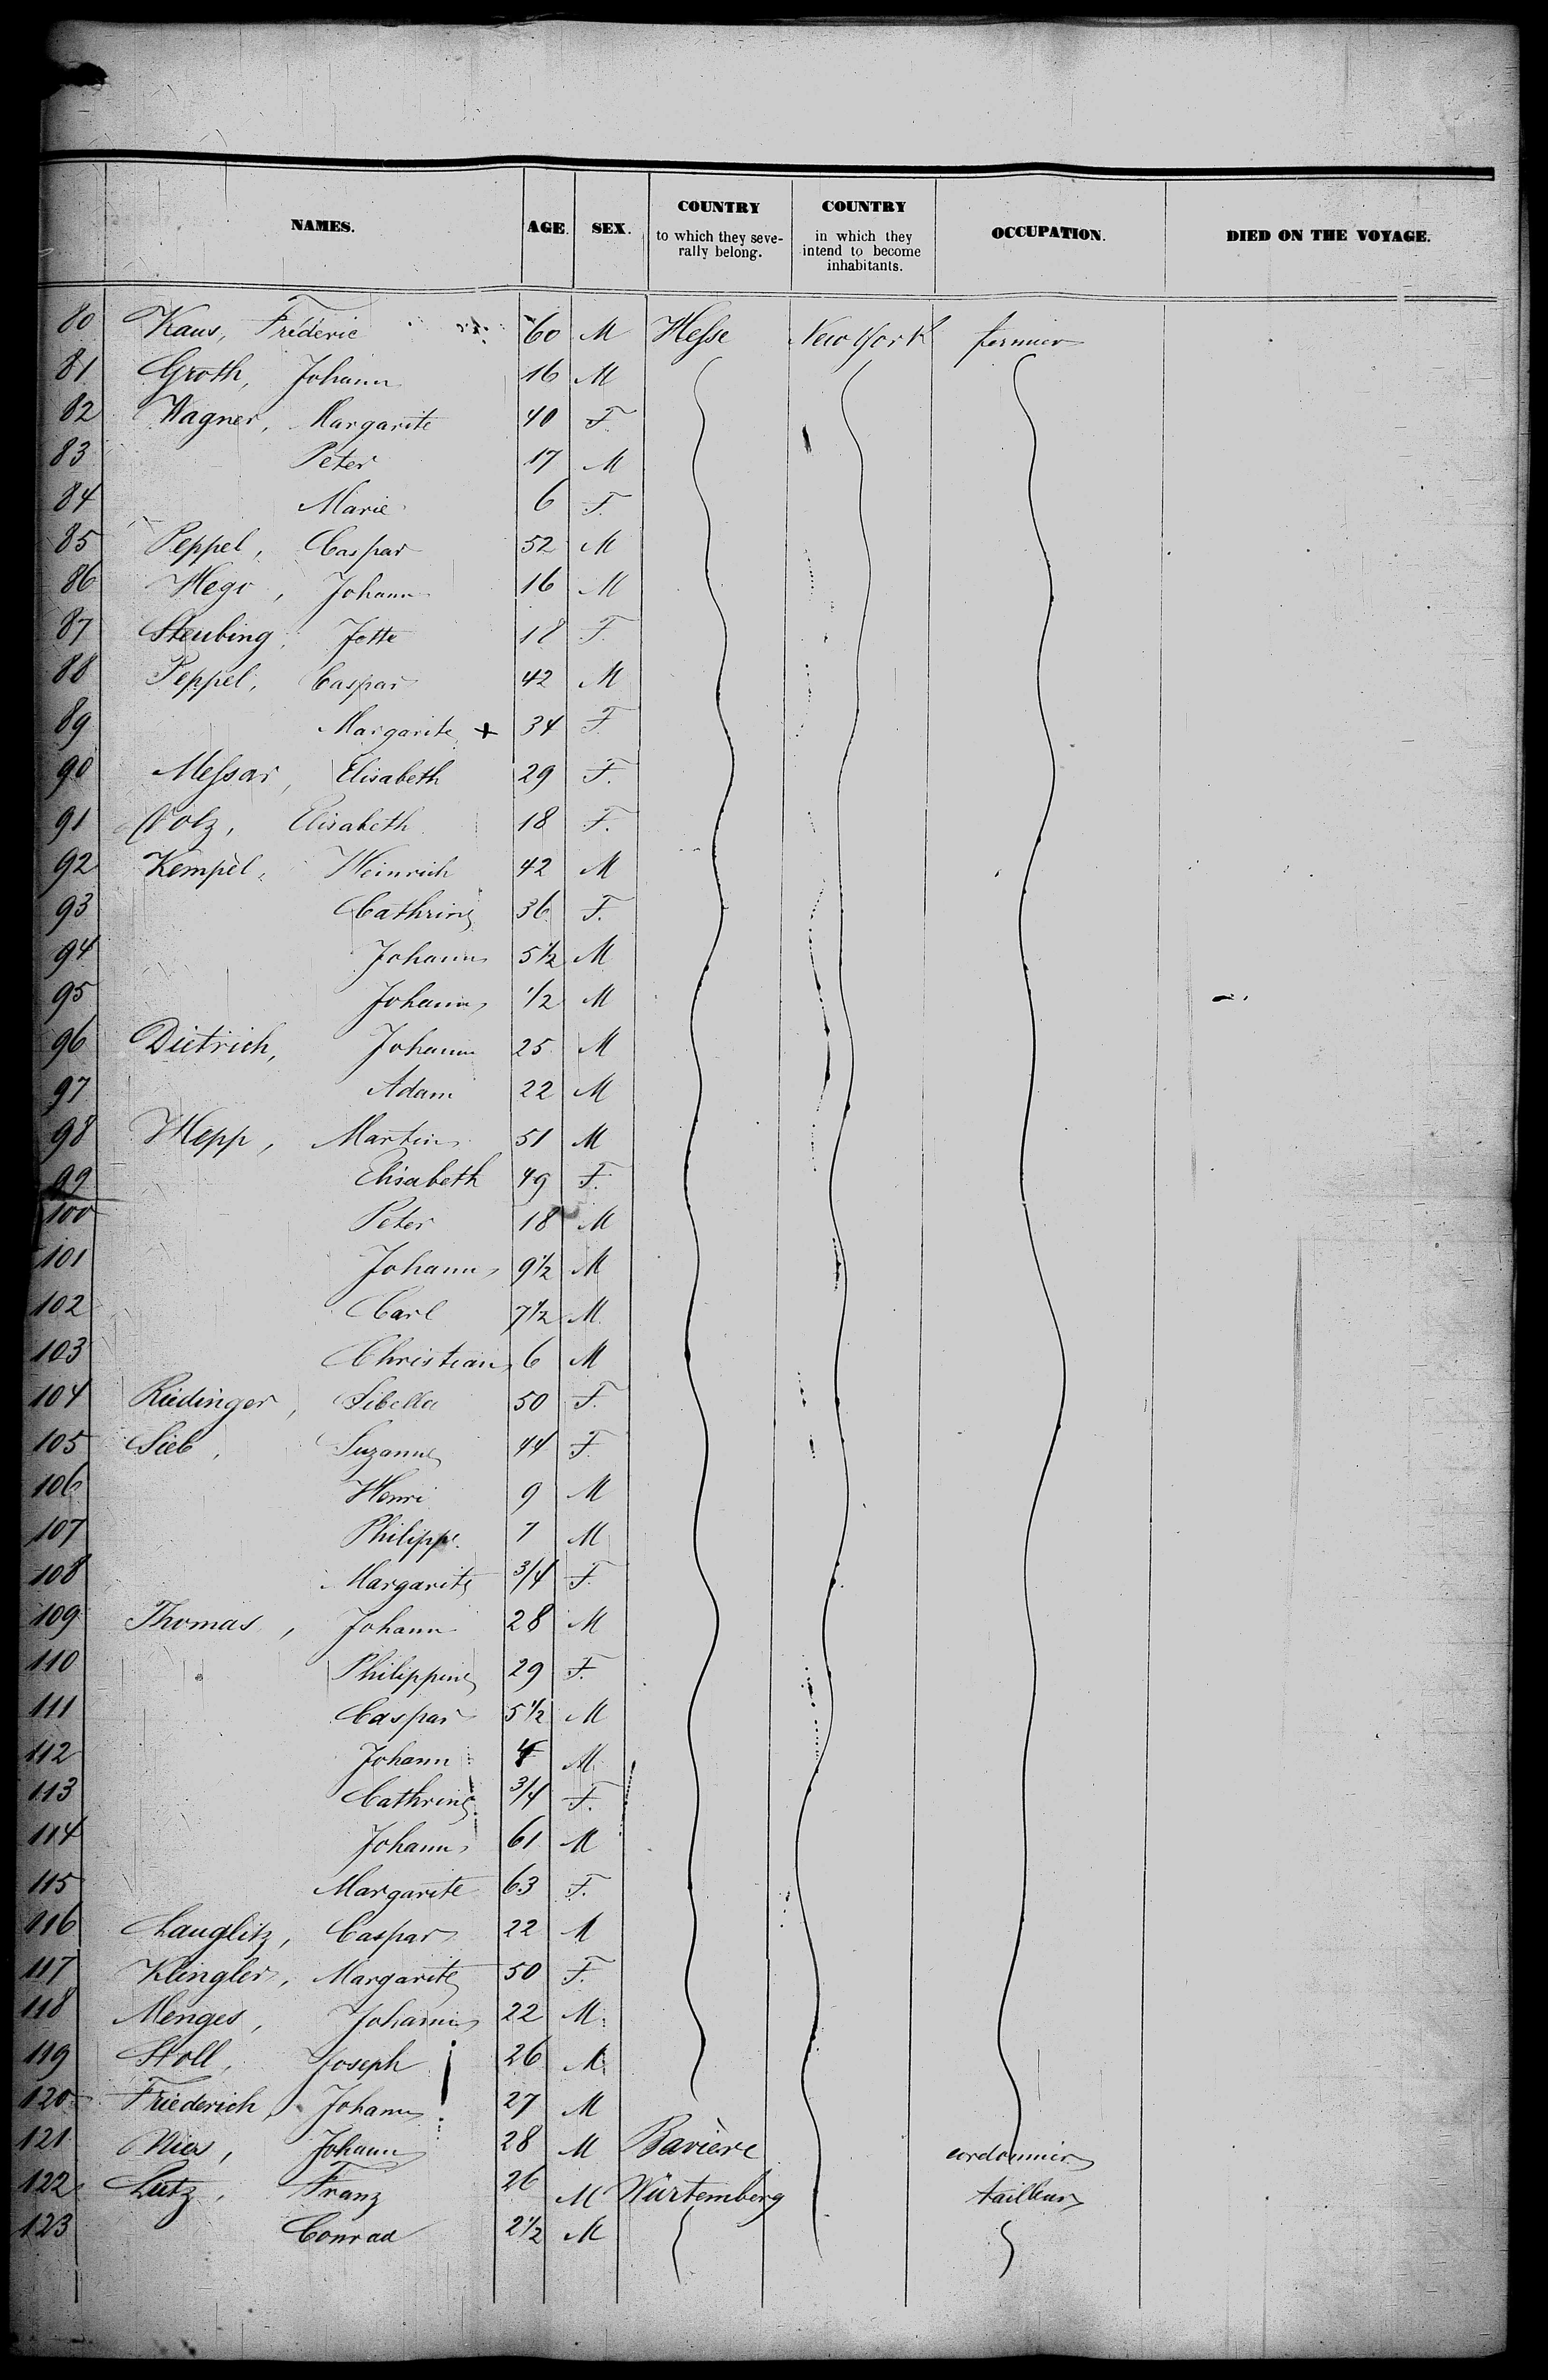 NAMES. AGE. SEX. COUNTRY to which they severally belong. COUNTRY in which they intend to become inhabitants. OCCUPATION. DIED ON THE VOYAGE.
80 Kaus, Fréderic 60 M Hesse New York fermier
81 Groth, Johann 16 M
82 Wagner, Margarite 40 F.
83 Peter 17 M
84 Marie 6 F.
85 Peppel, Caspar 52 M
86 Johann 16 M
87 Steubing, Jette 18 F.
88 Peppel, Caspar 42 M
89 Margarite + 34 F
90 Messar, Elisabeth 29 F.
91 Volz, Elisabeth 18 F.
92 Kempel, Heinrich 42 M
93 Cathrine 36 F.
94 Johann 5 1/2 M
95 Johann 1/2 M
96 Dietrich, Johann 25 M
97 Adam 22 M
98 Hepp, Martin 51 M
99 Elisabeth 49 F.
100 Peter 18 M
101 Johann 9 1/2 M
102 Carl 7 1/2 M
103 Christian 6 M
104 Riedinger, Sibella 50 F.
105 Sieb, Suzanne 44 F
106 Henri 9 M
107 Philipp. 7 M
108 Margarite 3/4 F.
109 Thomas, Johann 28 M
110 Philippine 29 F.
111 Caspar 5 1/2 M
112 Johann 4 M
113 Cathrine 3/4 F.
114 Johann 61 M
115 Margarite 63 F.
116 Lauglitz, Caspar 22 M
117 Klingler, Margarite 50 F.
118 Menges, Johann 22 M
119 Stoll, Joseph 26 M
120 Friederich, Johann 27 M
121 Nies, Johann 28 M Bavière cordonnier
122 Lutz, Franz 26 M Würtemberg tailleur
123 Conrad 2 1/2 M